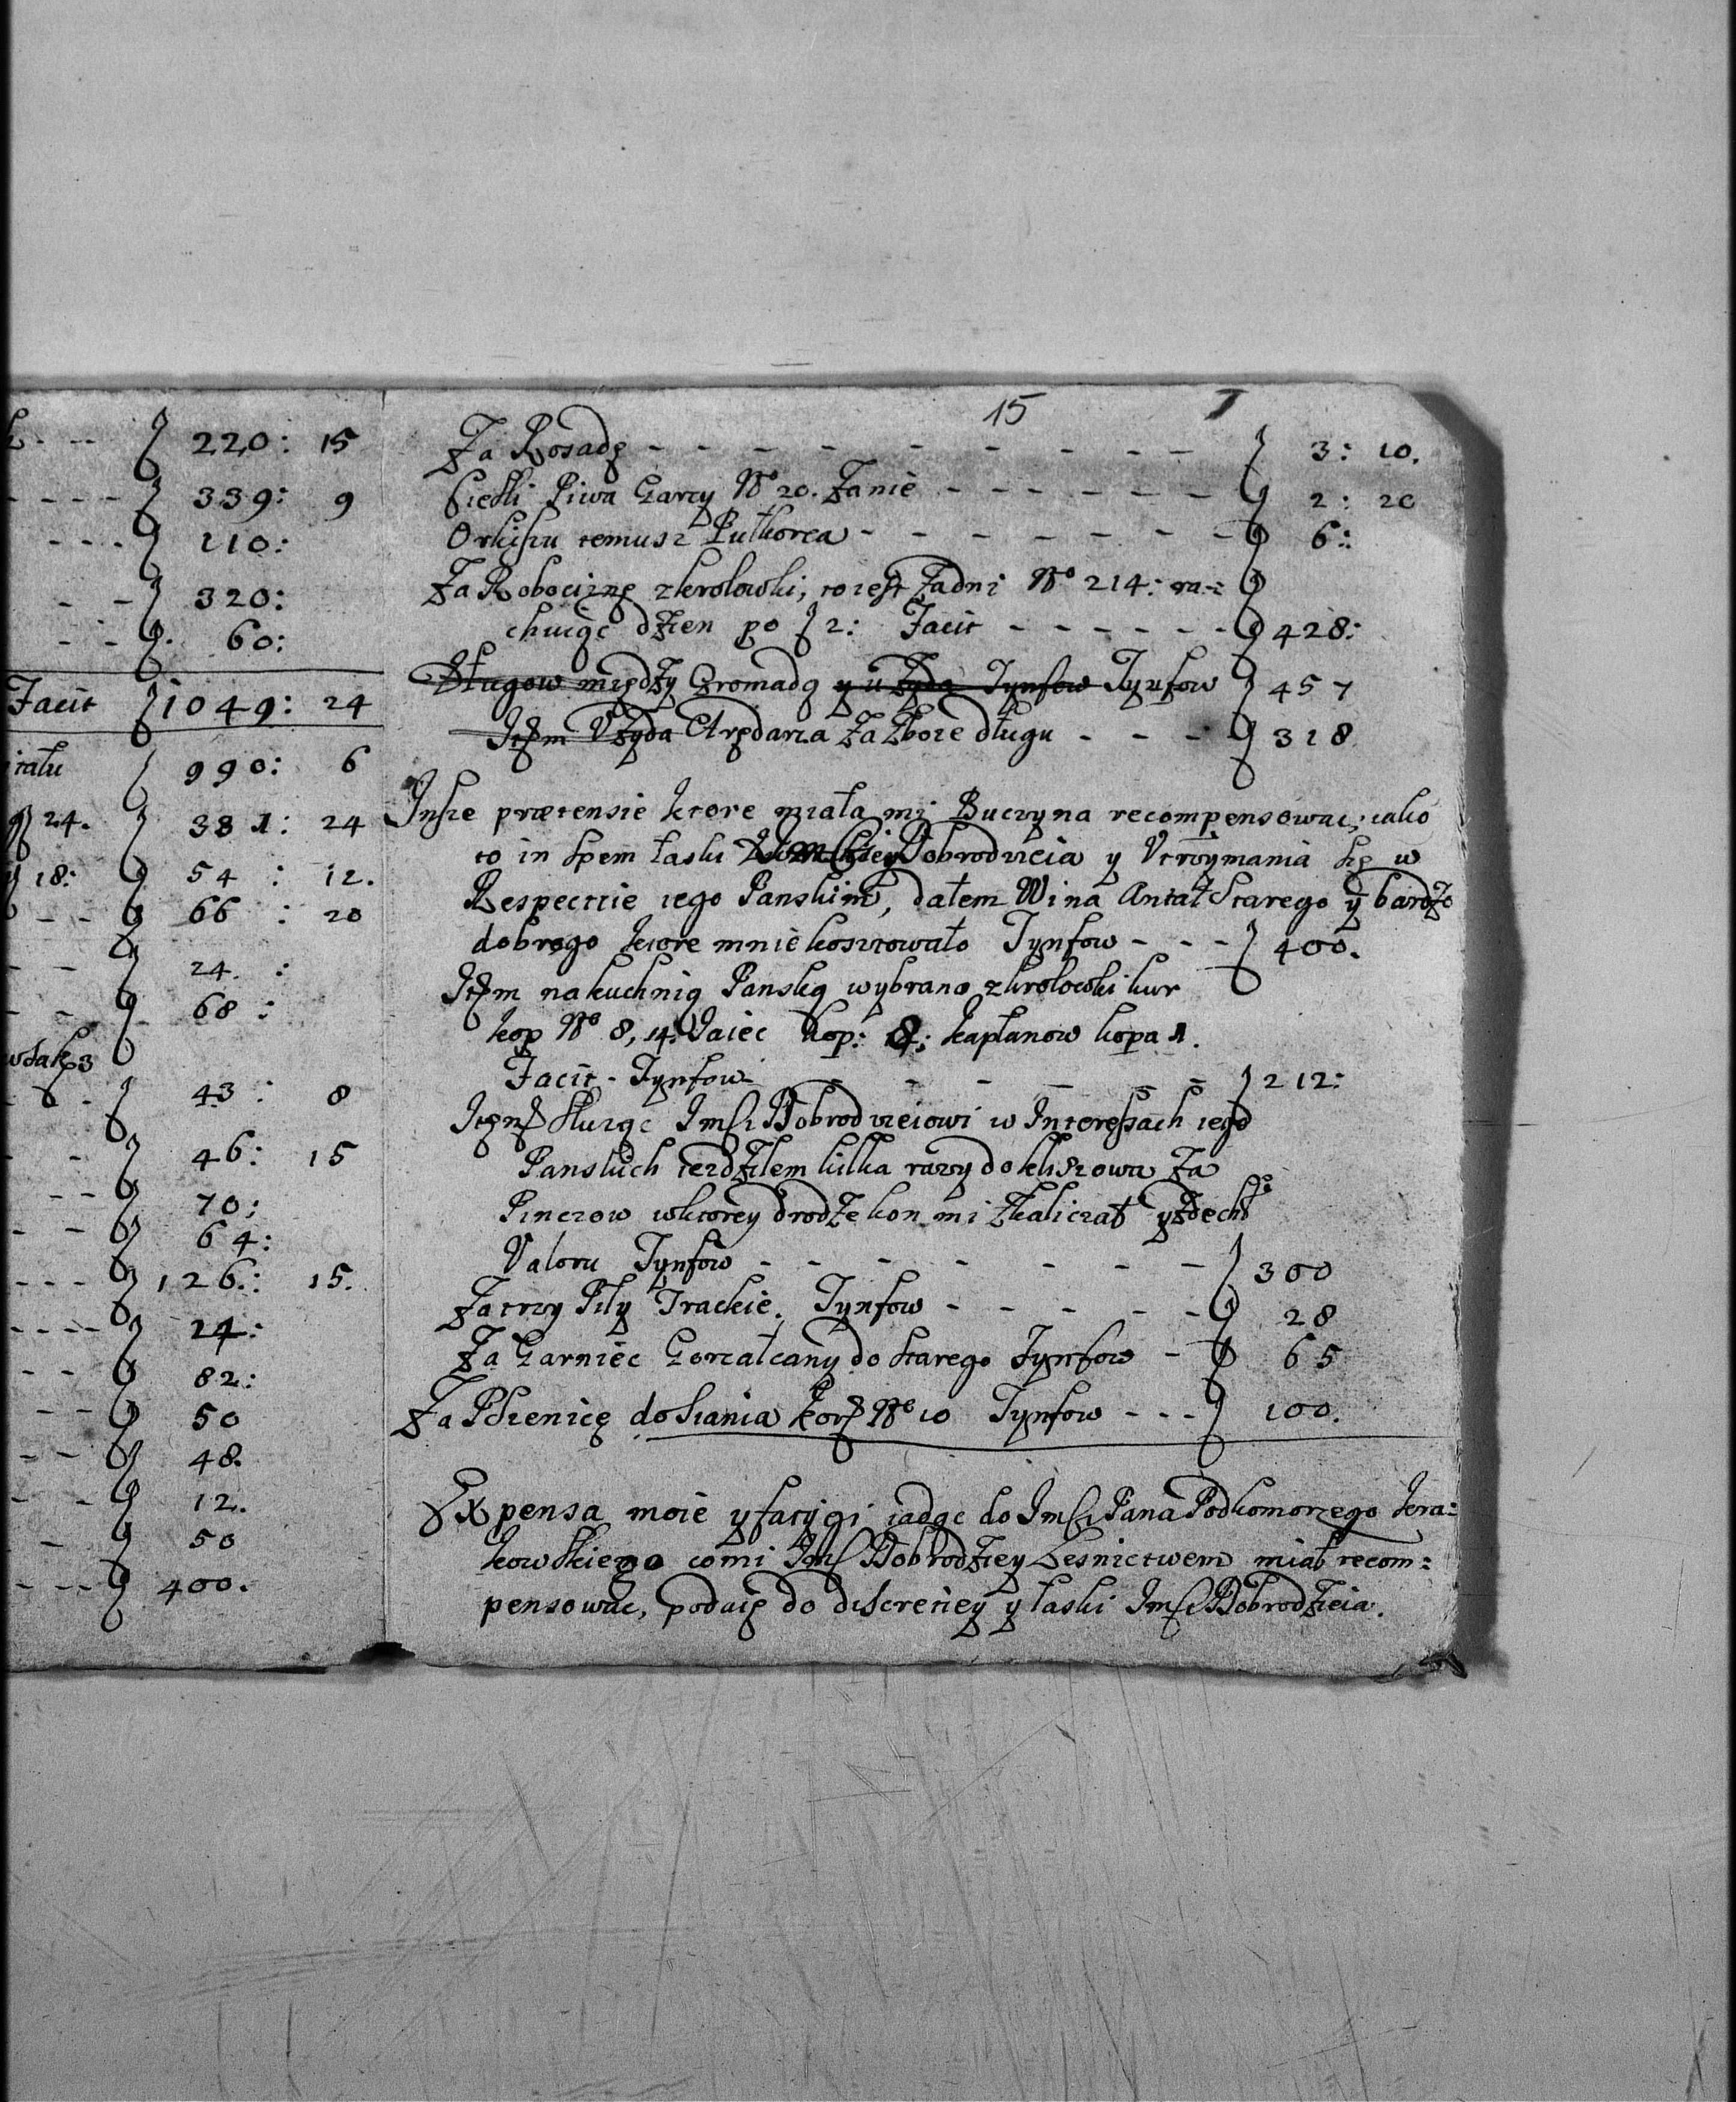 220: 15
339: 9
110:
320:
60:
Facit 1049: 24
990: 6
24. 381: 24
18: 54 : 12.
66 : 20
24. :
68 :
43 : 8
46: 15
70:
64:
126.: 15.
24:
82:
50
48.
12.
50
400.
15
Za Rosadę - - - - - - - - 3: 10.
Piwa Garcy No 20. Zanie - - - - - - 2: 20
Orkiszu temusz Pułkorca - - - - - - - 6:
Za Robociznę zkrolowki, to iest Zadni No 214: ra=
chuiąc dzien po f 2: Facit - - - - - - 428:
Długow między Gromadą y u Zyda Tynfow Tynfow 457
Itẽm Vzyda Arędarza Za Zboze długu - - - 318
Insze prætensie ktore miała mi Buczyna recompensowac, iako
to in spem łaski Dobrodzieia y Vtrzymania się w
Respectcie iego Panskim, dałem Wina Antał Starego y bardzo
dobrego ktore mnie kosztowało Tynfow - - - 400.
Itẽm na kuchnią Panską wybrano zkrolowki kur
kop No 8, Jaiec kop: kapłanow kopa 1.
Facit - Tynfow - - - - - - 212:
Itẽm Służąc Jmści Dobrodzieiowi w Interessach iego
Panskich iezdziłem kilka razy do kliszowa Za
Pinczow wktorey drodze kon mi Zkaliczał yzdechł
Valoru Tynfow - - - - - - - 300
Za trzy Piły Trackie. Tynfow - - - - - 28
Za Garniec Gorzałczany do Starego Tynfow - 65
Za Pszenicę do Siania kor No 10 Tynfow - - - 100.
Expensa moie y fatygi iadąc do Jmści Pana Podkomorzego kra=
kowskiego co mi Jmść Dobrodziey Lesnictwem miał recom=
pensowac, podaię do discretiey y łaski Jmści Dobrodzieia.